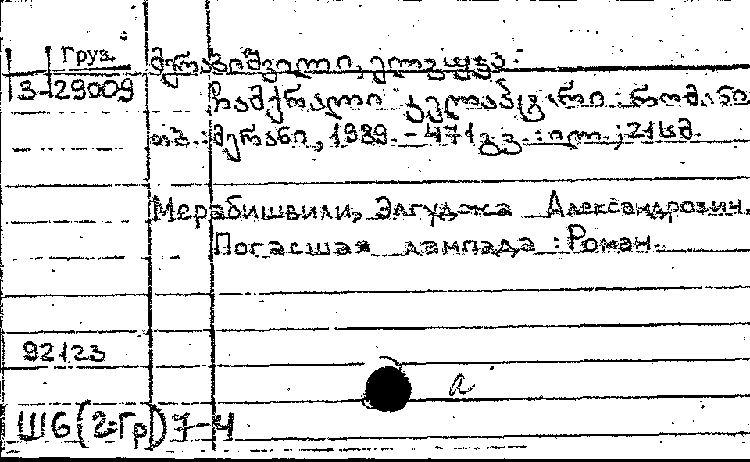 Груз.
3-29009
მერაბიშვილი, ელგუჯა.
ჩამქრალი კელაპტარი : რომანი
თბ. : მერანი, 1989. - 471 გვ. : ილ. ; 21 სმ.
Мерабишвили, Элгуджа Александрозич.
Погасшая лампада : Роман.
92123
а
Ш6(2=Гр)7-4